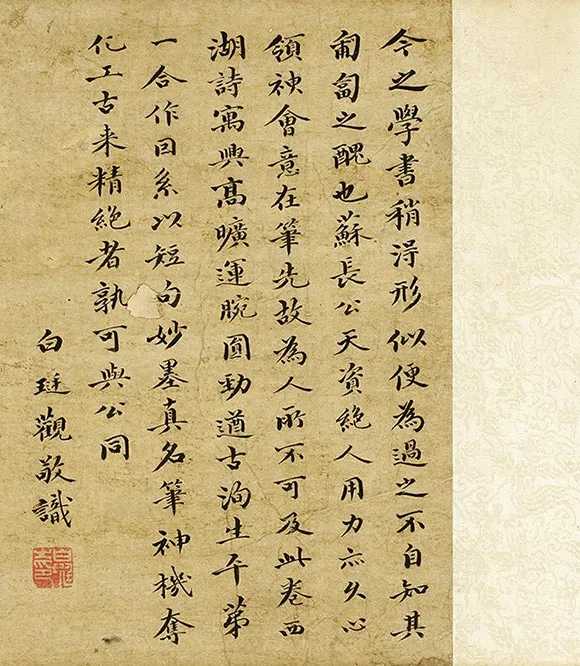 今之學書稍淂形似便為過之不自知其
匍匐之醜也蘇長公天資絶人用力亦久心
領神會意在筆先故為人所不可及此卷西
湖詩寓興髙曠運腕圎勁遒古洵生平第
一合作因系以短句妙墨真名筆神機奪
化工古来精絶者孰可與公同
白珽觀敬識